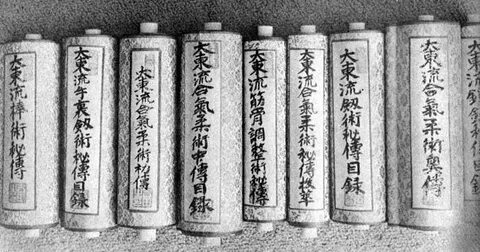 大東流
大東流合氣柔術奥傳
大東流劔術秘傳目録
大東流合氣柔術秘傳拔萃
大東流筋骨調整術秘傳
大東流合氣柔術中傳目録
大東流合氣柔術秘傳
大東流手裏劔術秘傳目録
大東流棒術秘傳